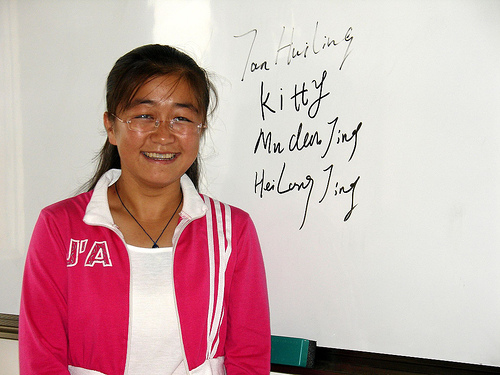 Tan Huiling
Kitty
Mudan Jing
HeiLong Jing
J'A